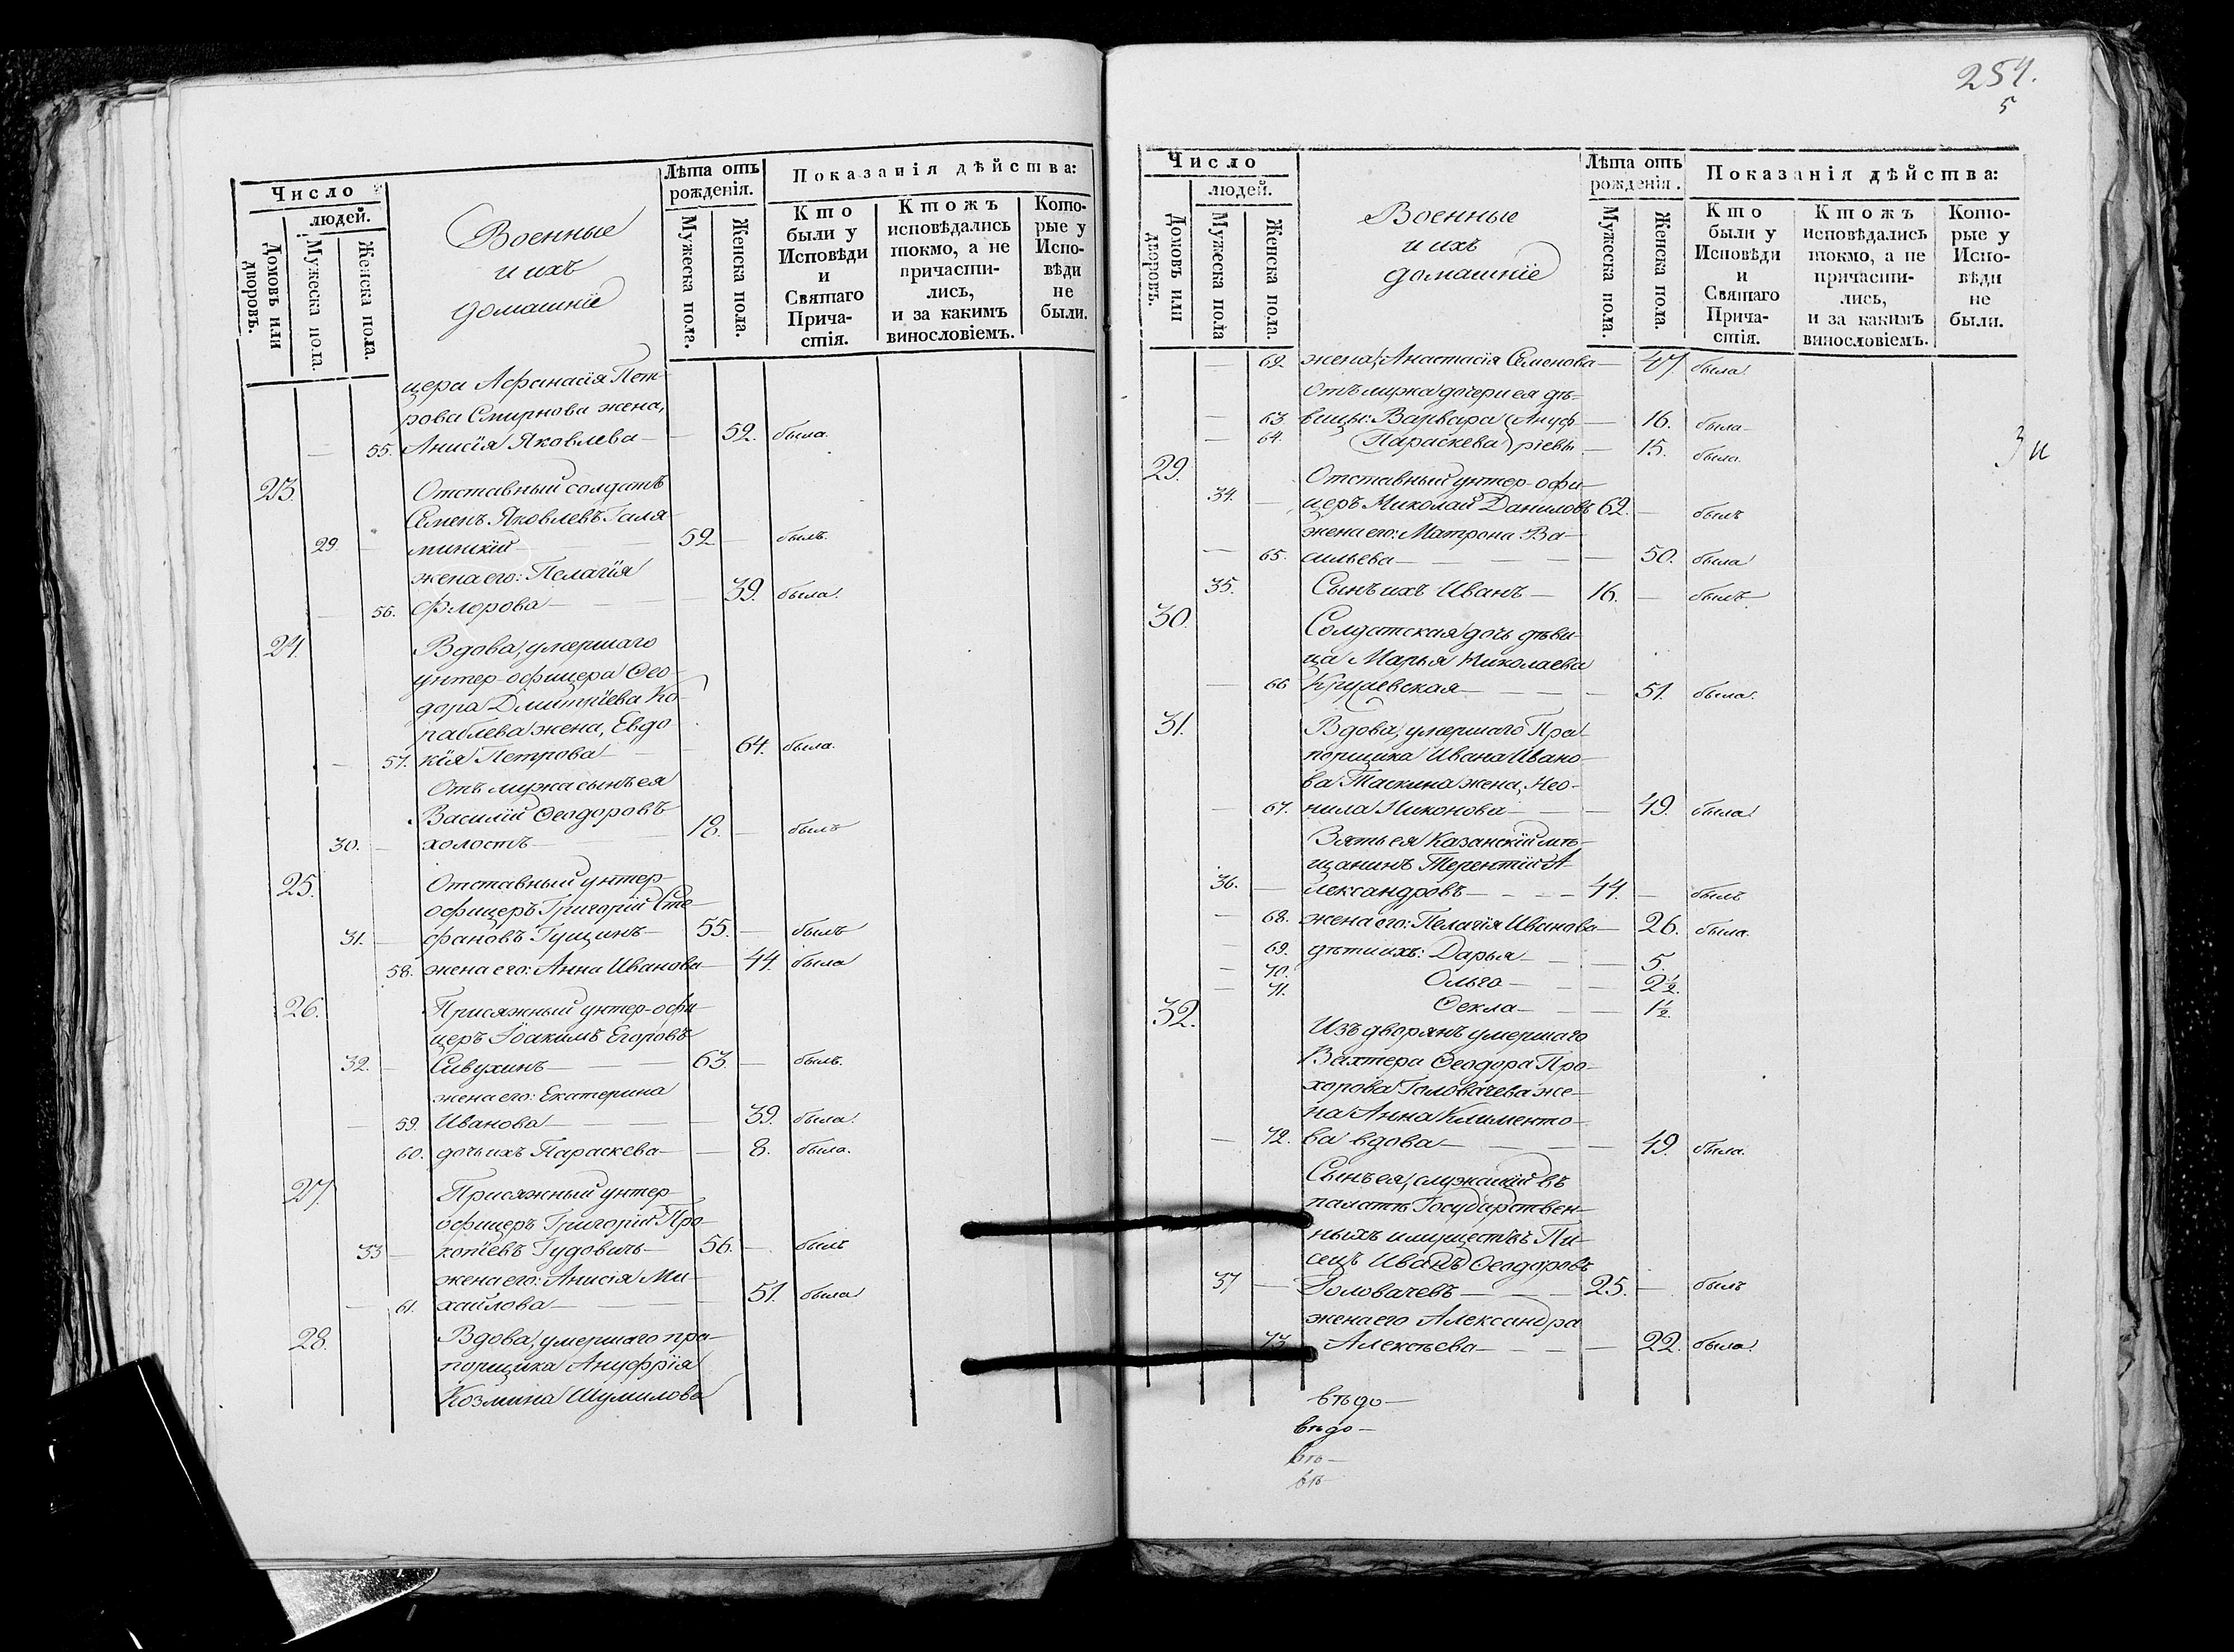 Число
людей.
Домовъ или дворовъ.
Мужеска пола.
Женска пола.
Военные
и ихъ
домашніе
Лѣта отъ
рожденія.
Мужеска пола.
Женска пола.
Показанія дѣйства:
Кто
были у
Исповѣди
и
Святаго
Прича-
стія.
Ктожъ
исповѣдались
токмо, а не
причасти-
лись,
и за какимъ
винословіемъ.
Кото-
рые у
Испо-
вѣди
не
были.
цера Афанасія Пет-
рова Смирнова жена,
55. Анисія Яковлева 52. была.
23. Отставный солдатъ
Семенъ Яковлевъ Галя-
29. 52 былъ.
жена его: Пелагія
56. Флорова 39. была.
24. Вдова, умершаго
унтер-офицера Ѳео-
дора Димитріева Ко-
раблева жена, Евдо
57. кія Петрова 64. была.
Отъ мужа сынъ ея
Василій Ѳеодоровъ
30. холостъ 18. былъ
25. Отставный унтер-
офицеръ Григорій Сте-
31. фановъ Гущинъ 55. былъ
58. жена его: Анна Иванова 44. была
26. Присяжный унтер-офи-
церъ Іоакимъ Егоровъ
32. Сивухинъ 63. былъ.
жена его: Екатерина
59. Иванова 39. была.
60. дочь ихъ Параскева 8. была.
27. Присяжный унтер-
офицеръ Григорій Про-
33 копіевъ Гудовичъ 56. былъ
жена его: Анисія Ми-
61. хайлова 51. была
28. Вдова, умершаго пра-
порщика Ануфрія
Козмина Шумилова
254.
5
Число
людей.
Домовъ или дворовъ.
Мужеска пола
Женска пола.
Военные
и ихъ
домашніе
Лѣта отъ
рожденія.
Мужеска пола.
Женска пола.
Показанія дѣйства:
Кто
были у
Исповѣди
и
Святаго
Прича-
стія.
Ктожъ
исповѣдались
токмо, а не
причасти-
лись,
и за какимъ
винословіемъ.
Кото-
рые у
Испо-
вѣди
не
были.
62 жена, Анастасія Семенова 47. была
Отъ мужа дочери ея дѣ-
63. вицы: Варвара Ануф 16. была
64. Параскева ріевы 15. была.
29. Отставный унтер-офи-
34. церъ Николай Даниловъ 62. былъ
жена его: Матрона Ва-
65. сильева 50. была
35. Сынъ ихъ Иванъ 16. былъ
30. Солдатская дочь дѣви-
ца Марья Николаева
66 51. была.
31. Вдова, умершаго Пра-
порщика Ивана Ивано-
ва Таскина жена, Нео-
67. нила Никонова 49. была
Зять ея Казанскій мѣ-
щанинъ Терентій А-
36. лександровъ 44. былъ
68. жена его: Пелагія Иванова 26. была.
69. дѣти ихъ: Дарья 5.
70. Ольга 2½.
71. Ѳекла 1½.
32. Изъ дворянъ умершаго
Вахтера Ѳеодора Про-
хорова Головачева же-
на Анна Климентο-
72. ва вдова 49. была.
Сынъ ея, служащій въ
палатѣ Государствен-
ныхъ имуществъ Пи-
сецъ Иванъ Ѳеодоровъ
37 Головачевъ 25. былъ
жена его Александра
73. Алексѣева 22. была.
вѣдо-
вѣдо-
вѣ-
вѣ-